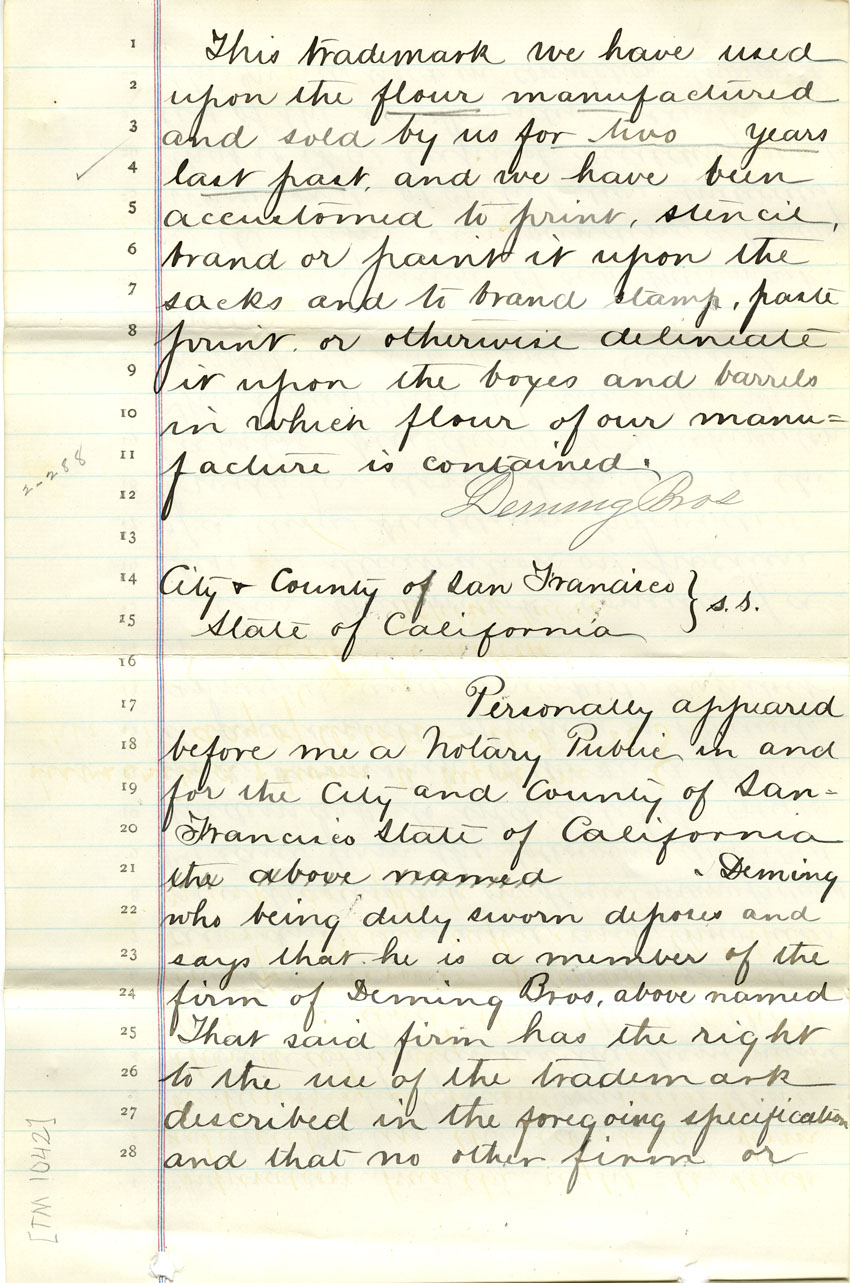 1 This trademark we have used
2 upon the flour manufactured
3 and sold by us for two years
4 last past, and we have been
5 accustomed to print, stencil,
6 brand or paint it upon the
7 sacks and to brand stamp, paste
8 print or otherwise delineate
9 it upon the boxes and barrels
10 in which flour of our manu=
11 facture is contained.
2-288
12 Deming Bros
13
14 City & County of San Francisco } s.s.
15 State of California
16
17 Personally appeared
18 before me a Notary Public in and
19 for the City and County of San=
20 Francisco State of California
21 the above named Deming
22 who being duly sworn deposes and
23 says that he is a member of the
24 firm of Deming Bros, above named
25 That said firm has the right
26 to the use of the trademark
27 described in the foregoing specification
28 and that no other firm or
[TM 1042]